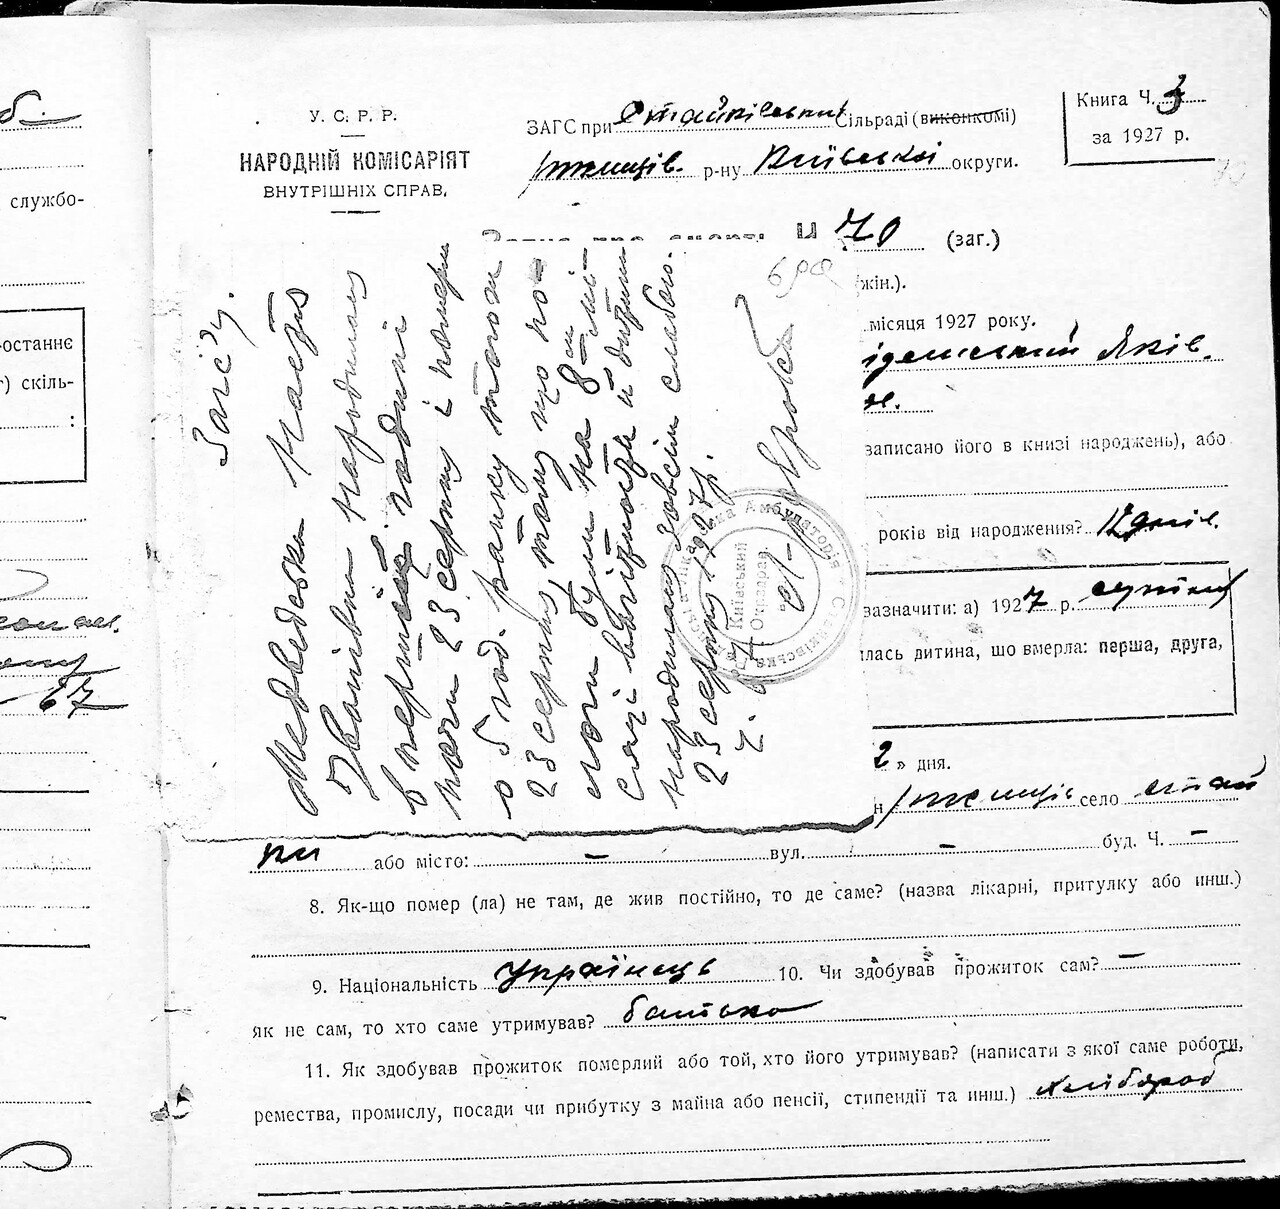 У. С. Р. Р.
НАРОДНІЙ КОМІСАРІЯТ
ВНУТРІШНІХ СПРАВ.
ЗАГС при Стайківський Сільраді (виконкомі)
Ржищів. р-ну Київської округи.
Книга Ч. 3
за 1927 р.
70 (заг.)
жін.).
місяця 1927 року.
Яків.
записано його в книзі народжень), або
років від народження? 12 днів.
зазначити: а) 1927 р. серпня
лась дитина, що вмерла: перша, друга,
2 » дня.
н Ржищів село Стай
ки або місто: – вул. – буд. Ч. –
8. Як-що помер (ла) не там, де жив постійно, то де саме? (назва лікарні, притулку або инш.)
9. Національність Українець 10. Чи здобував прожиток сам? –
як не сам, то хто саме утримував? батько
11. Як здобував прожиток померлий або той, хто його утримував? (написати з якої саме роботи,
ремества, промислу, посади чи прибутку з майна або пенсії, стипендії та инш.) хлібороб
Загсу.
Медведська Настя
Іванівна народилась
в першій годині
ночи 23 серпня і померла
о 5 год. ранку того ж
23 серпня, тому що по-
логи були на 8 мі-
сяці вагітности й дитина
народилась зовсім слабою.
23 серпня 1927 р.
Київський
Окрздрав
службо-
-останнє
скіль-
:
67